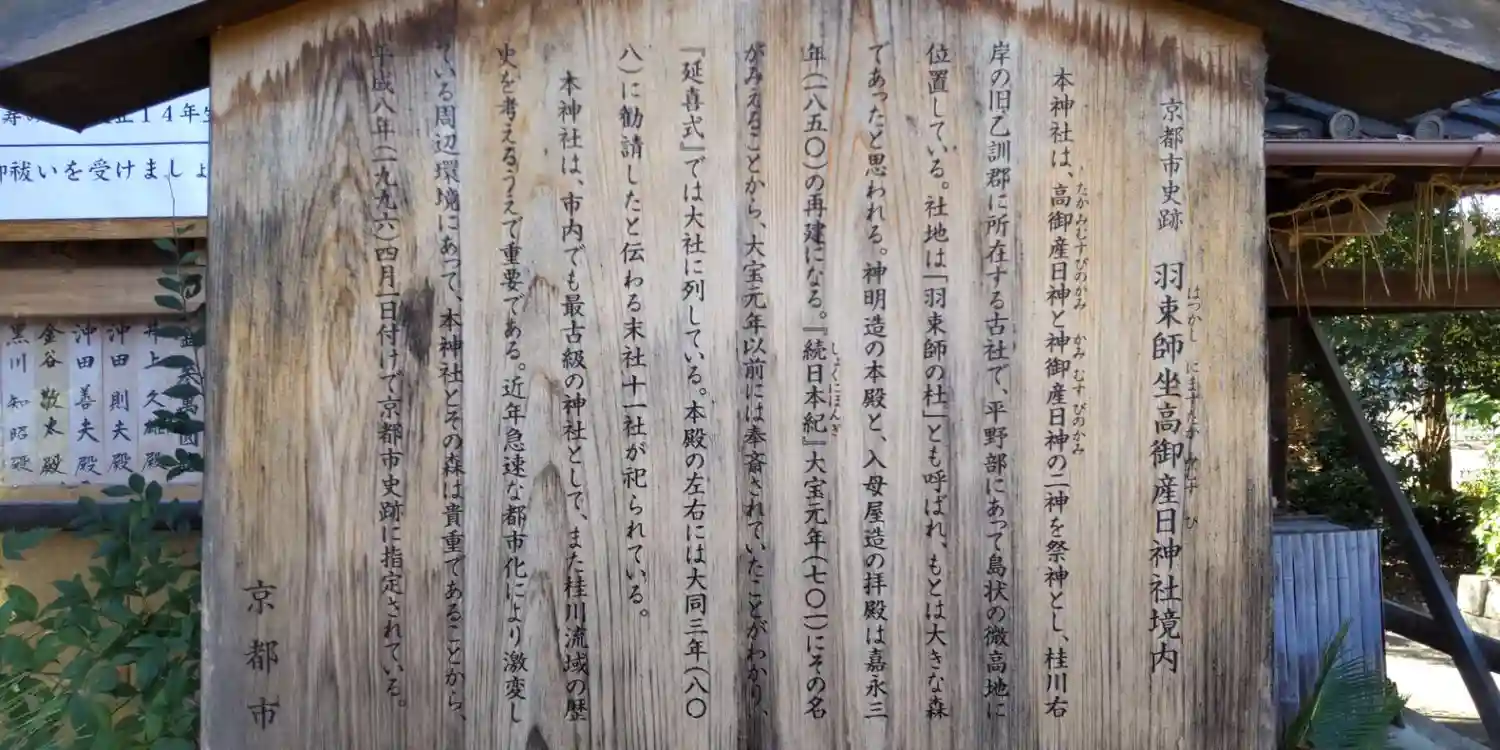 京都市史跡　羽束師坐高御産日神社境内
はつかし　にますたか　みむす　び
本神社は、高御産日神と神御産日神の二神を祭神とし、桂川右
たかみむすびのかみ　かみ　むす　びのかみ
岸の旧乙訓郡に所在する古社で、平野部にあって島状の微高地に
位置している。社地は「羽束師の杜」とも呼ばれ、もとは大きな森
であったと思われる。神明造の本殿と、入母屋造の拝殿は嘉永三
年（一八五〇）の再建になる。『続日本紀』大宝元年（七〇一）にその名
しょくにほんぎ
がみえることから、大宝元年以前には奉斎されていたことがわかり、
『延喜式』では大社に列している。本殿の左右には大同三年（八〇
八）に勧請したと伝わる末社十一社が祀られている。
本神社は、市内でも最古級の神社として、また桂川流域の歴
史を考えるうえで重要である。近年急速な都市化により激変し
ている周辺環境にあって、本神社とその森は貴重であることから、
平成八年（一九九六）四月一日付けで京都市史跡に指定されている。
京都市
14年生
祓いを受けましょ
井上久
沖田則夫殿
沖田善夫殿
金谷敬太殿
黒川知昭殿